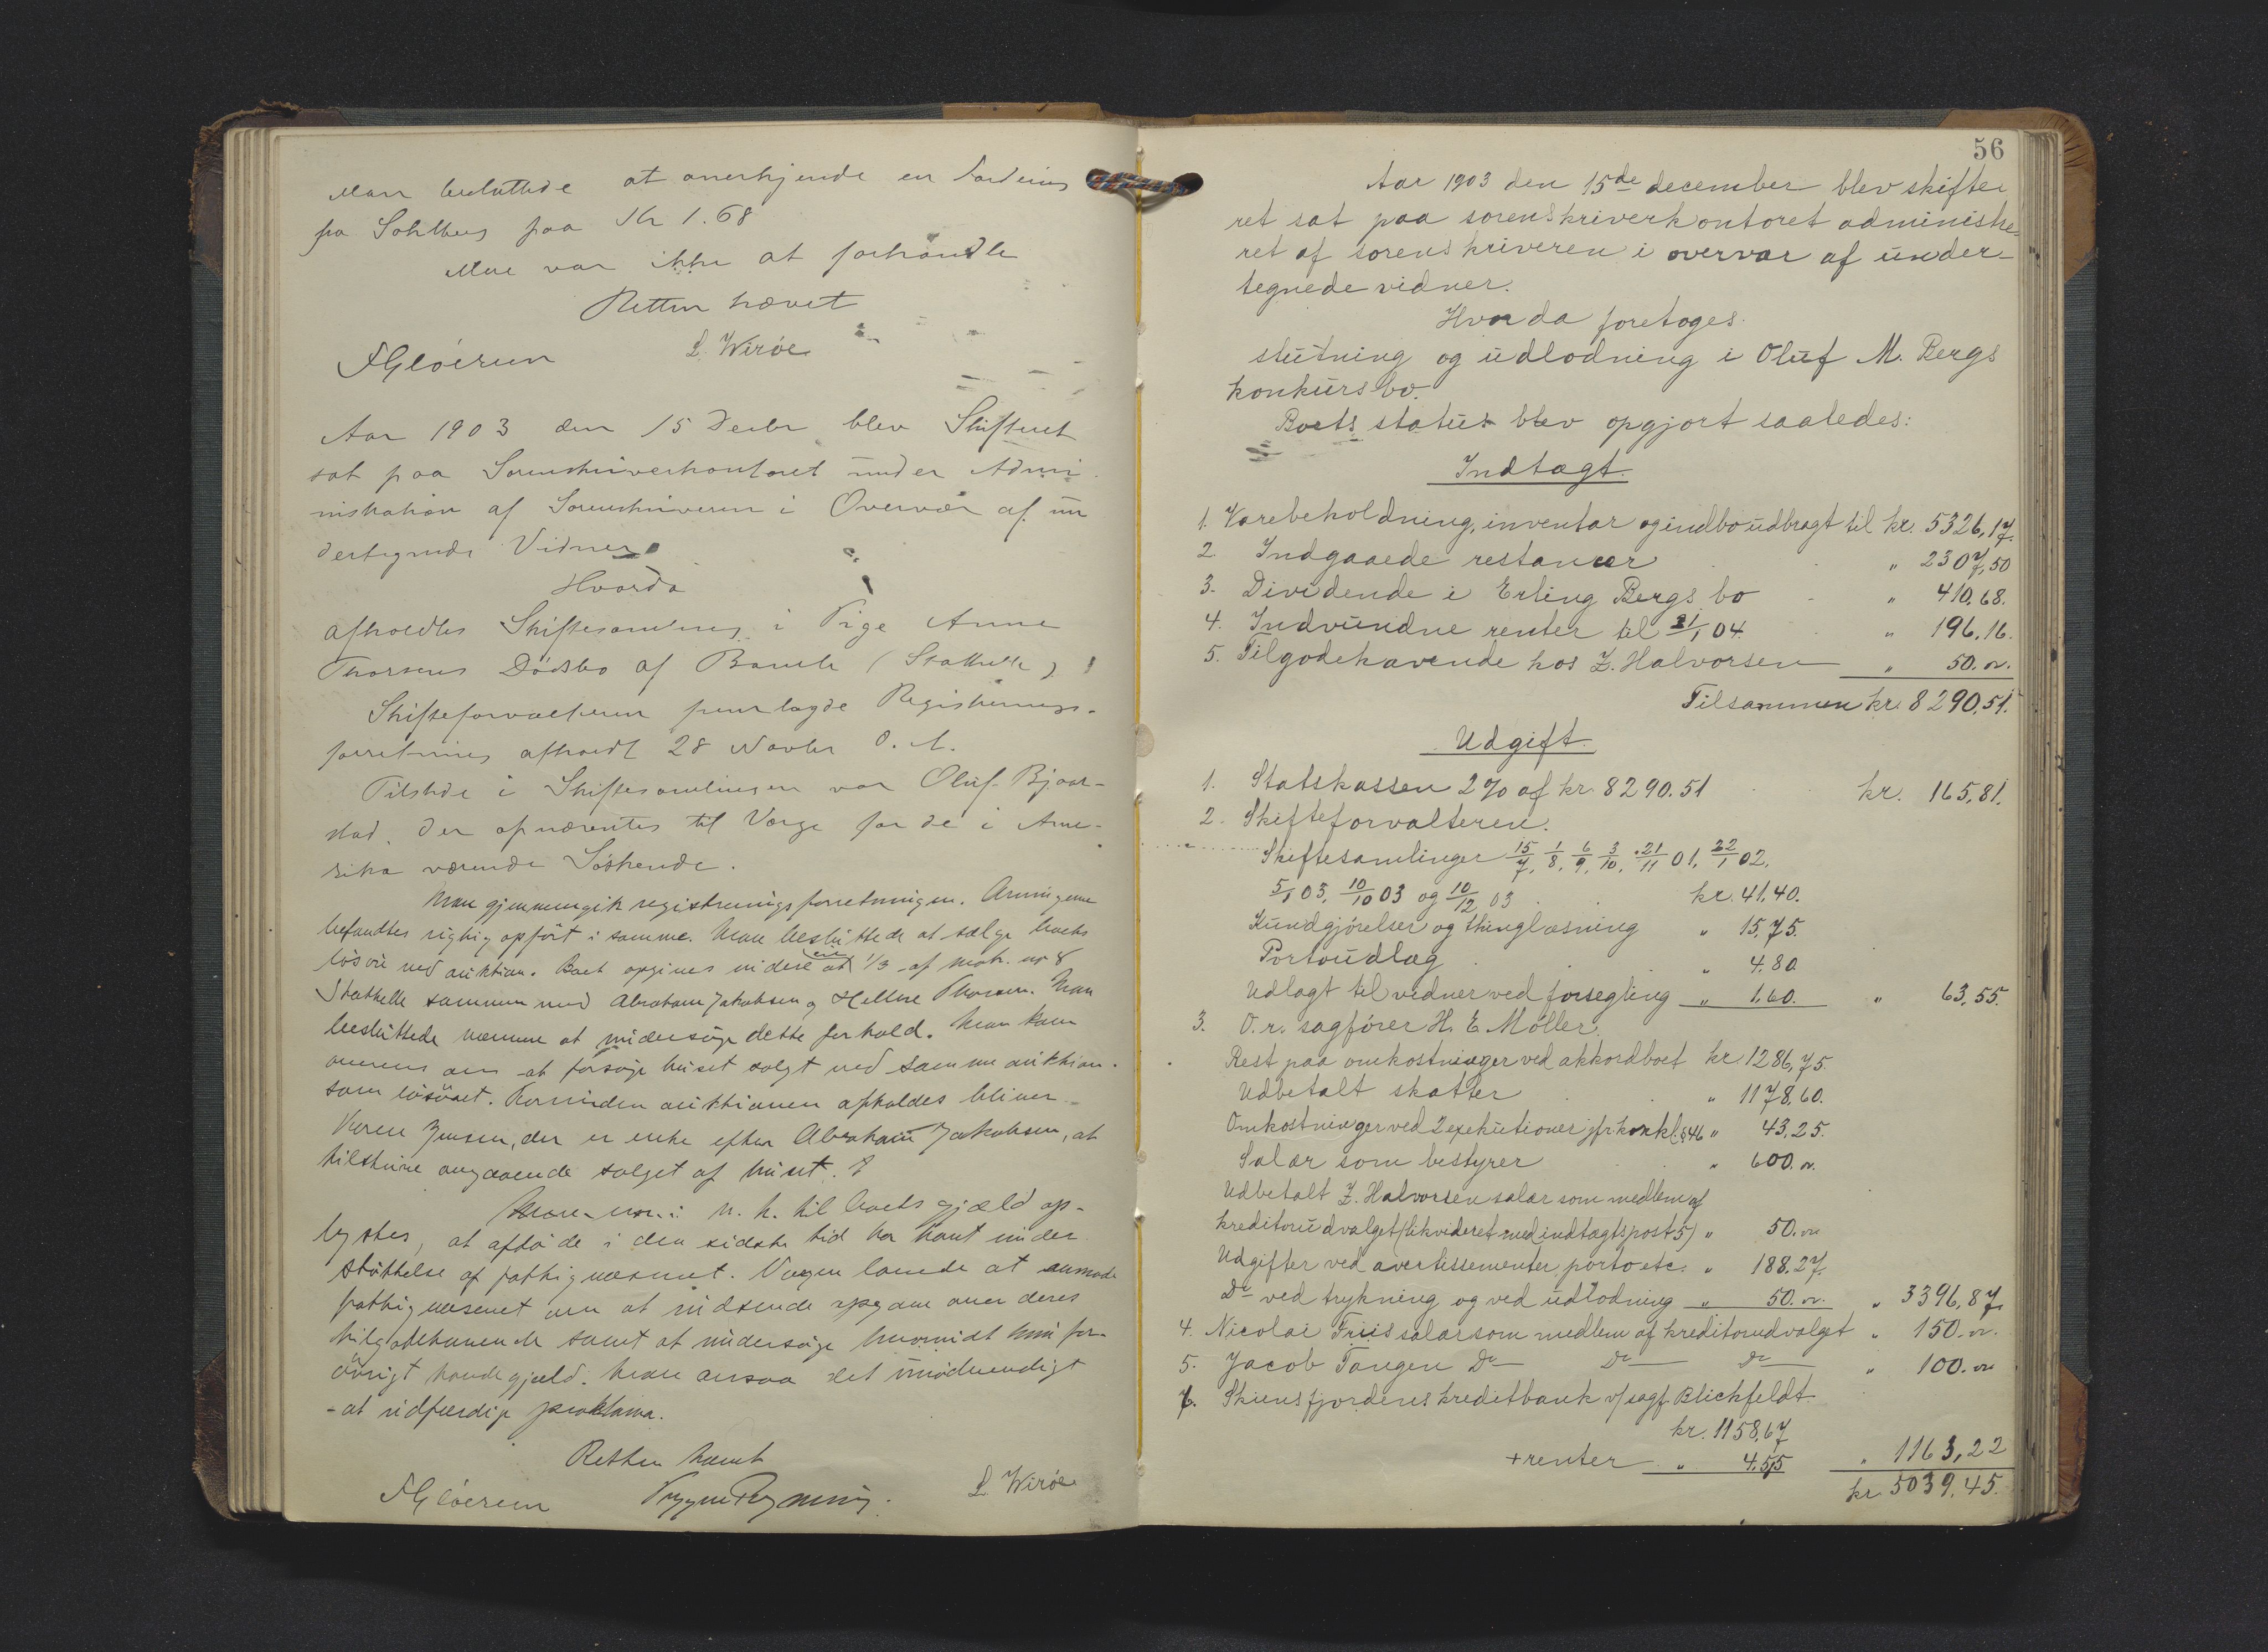 Man besluttede at anerkjende en Fordring
fra Sahlberg paa Kr 1.68
Mere var ikke at forhandle
Retten hævet
L. Wirøe
Aar 1903 den 15 Decbr blev Skifteret
sat paa Sorenskriverkontoret under Admi
nistration af Sorenskriveren i Overvær af un
dertegnede Vidner
Hvorda
afholdtes Skiftesamling i Pige Anne
Thorsens Dödsbo af Bamble (Stathelle)
Skifteforvalteren fremlagde Registrerings-
forretning afholdt 28 Novbr d. A.
Tilstede i Skiftesamlingen var Oluf Bjaar-
stad, der opnævntes til Værge for de i Ame-
rika værende Söskende.
Man gjennemgik registreringsforretningen. Arvingerne
befandtes rigtig opført i samme. Man besluttede at sælge boets
lösöre ved auktion. Boet opgives videre at eie 1/3 af matr. nr 8
Stathelle sammen med Abraham Jakobsen og Helene Thorsen. Man
besluttede nærmere at undersöge dette forhold. Man kom
overens om at forsöge huset solgt ved samme auktion
som lösöret. Forinden auktionen afholdes bliver
Karen Jensen, der er enke efter Abraham Jakobsen, at
tilskrive angaaende salget af huset.
m. h. til boets gjæld op-
lystes, at afdöde i den sidste tid har havt under
stöttelse af fattigvæsenet. Værgen lovede at anmode
fattigvæsenet om at indsende opgave over deres
tilgodehavende samt at undersöge hvorvidt hun for-
övrigt havde gjæld. Man ansaa det unödvendigt
at udfærdige proklama.
Retten hævet
L. Wirøe
56
Aar 1903 den 15de december blev skifte
ret sat paa sorenskriverkontoret administre-
ret af sorenskriveren i overvær af under-
tegnede vidner.
Hvorda foretoges
slutning og udlodning i Oluf M. Bergs
konkursbo.
Boets status blev opgjort saaledes:
Indtægt.
1. Varebeholdning, inventar og indbo udbragt til kr. 5326,17.
2. Indgaaede restancer " 2307,50
3. Dividende i Erling Bergs bo " 410,68.
4. Indvundne renter til 21/1 04. " 196,16.
5. Tilgodehavende hos Z. Halvorsen " 50. "
Tilsammen kr. 8290,51.
Udgift.
1. Statskassen 2 % af kr. 8290.51 kr. 165,81.
2. Skifteforvalteren.
Skiftesamlinger 15/7, 1/8, 6/9, 3/10, 21/11 01, 22/1 02.
5/1 03, 10/10 03 og 10/12 03 kr. 41.40.
Kundgjørelser og thinglæsning " 15,75.
Portoudlæg " 4.80
Udlagt til vidner ved forsegling " 1,60. " 63,55.
3. O.r. sagfører H. E. Møller.
Rest paa omkostninger ved akkordboet kr 1286,75.
Udbetalt skatter " 1178,60.
Omkostninger ved 2 exekutioner jfr. konkl. §46 " 43,25.
Salær som bestyrer " 600. "
Udbetalt Z. Halvorsen salær som medlem af
kreditorudvalget (likvideret med indtægtspost 5) " 50. "
Udgifter ved avertissementer porto etc. " 188.27.
Do ved trykning og ved udlodning " 50. " " 3396,87,
4. Nicolai Friis salær som medlem af kreditorudvalget " 150. "
5. Jacob Tangen Do Do Do " 100. "
6. Skiensfjordens kreditbank v/ sagf. Blichfeldt
kr. 1158,67
+ renter " 4.55 " 1163,22
kr 5039,45.